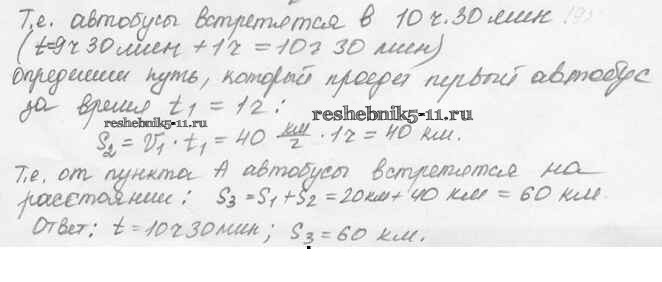 Т.е. автобусы встретятся в 10 ч. 30 мин
(t=9ч 30 мин + 1ч = 10ч 30 мин)
Определим путь, который проедет первый автобус
за время t₁ = 1ч:
reshebnik5-11.ru
reshebnik5-11.ru
S₂ = V₁ · t₁ = 40 км/ч · 1ч = 40 км.
Т.е. от пункта А автобусы встретятся на
расстоянии: S₃ = S₁ + S₂ = 20км + 40 км = 60 км.
Ответ: t = 10ч 30 мин; S₃ = 60 км.